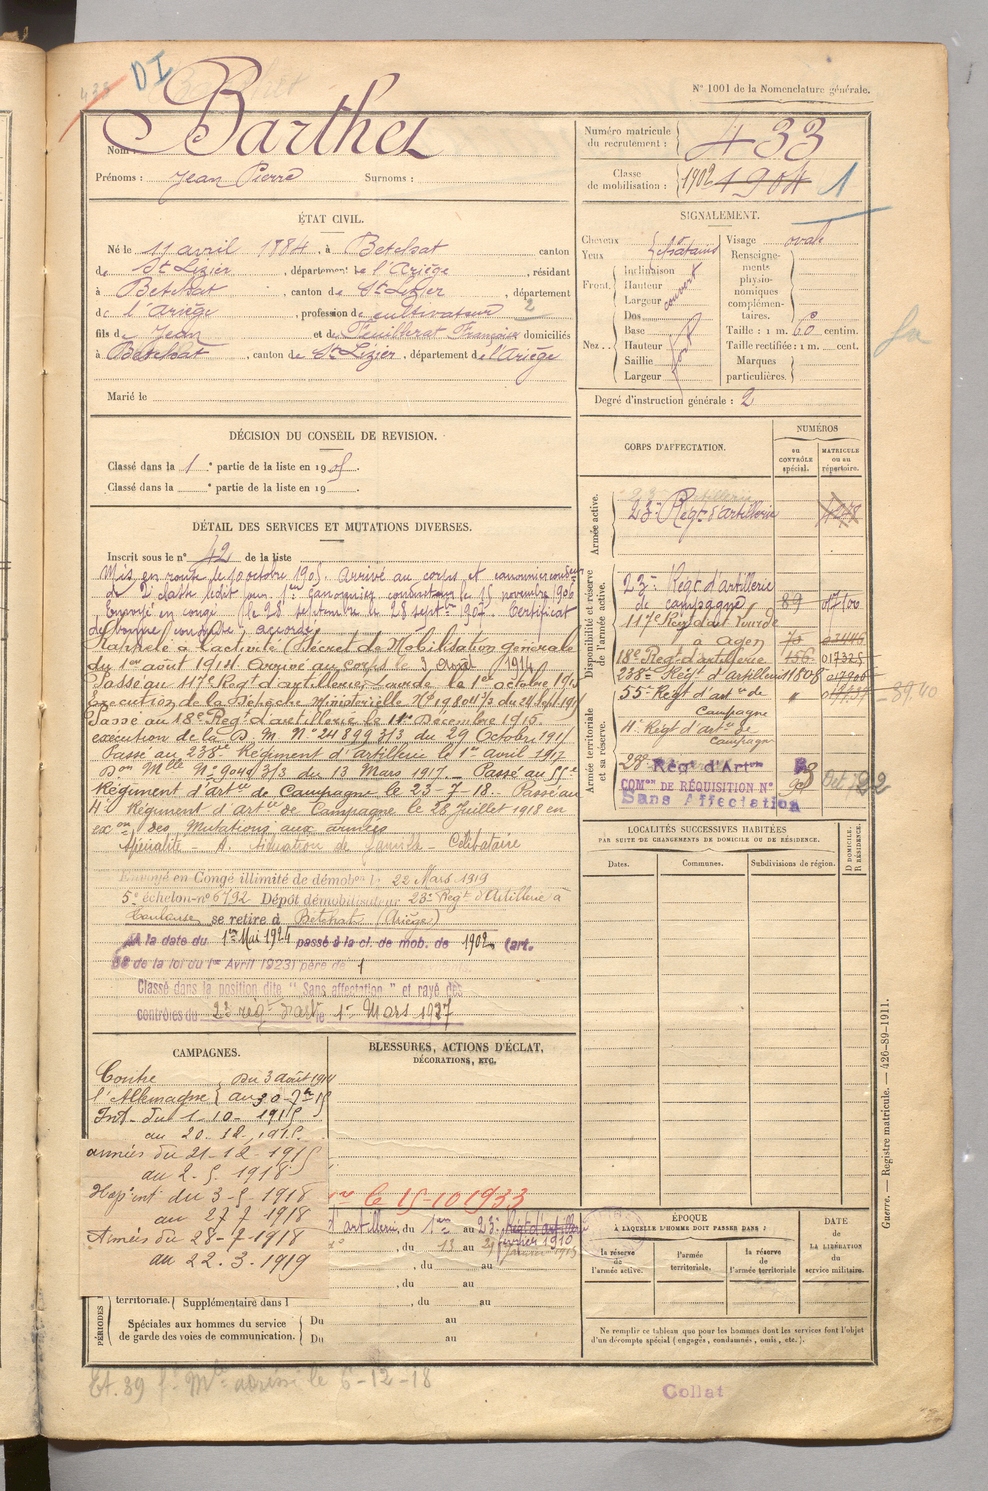 DI
N° 1001 de la Nomenclature générale.
Nom : Barthet
Prénoms : Jean Pierre Surnoms :
Numéro matricule du recrutement : 433
Classe de mobilisation : 1902 1904 1
ÉTAT CIVIL.
Né le 11 avril 1884, à Betchat canton
de St Lizier, département de l'Ariège, résidant
à Betchat, canton de St Lizier, département
de l'Ariège, profession de cultivateur 2
fils de Jean et de Feuillerat Françoise domiciliés
à Betchat, canton de St Lizier, département de l'Ariège
Marié le
SIGNALEMENT.
Cheveux châtains
Yeux
Front. Inclinaison
Hauteur couvert
Largeur
Nez. Dos
Base
Hauteur fort
Saillie
Largeur
Visage ovale
Renseignements physionomiques complémentaires.
Taille : 1 m. 60 centim.
Taille rectifiée : 1 m. cent.
Marques particulières.
Degré d'instruction générale : 2
DÉCISION DU CONSEIL DE REVISION.
Classé dans la 1e partie de la liste en 1905.
Classé dans la e partie de la liste en 19 .
DÉTAIL DES SERVICES ET MUTATIONS DIVERSES.
Inscrit sous le n° 42 de la liste
Mis en route le 10 octobre 1905. Arrivé au corps et canonnier conducteur
de 2e classe ledit jour. 1er canonnier conducteur le 15 novembre 1906
Envoyé en congé le 28 septembre le 28 septbre 1907. Certificat
de bonne conduite accordé
Rappelé à l'activité (Décret de Mobilisation générale
du 1er août 1914. Arrivé au corps le 3 Août 1914
Passé au 117e Régt d'artillerie Lourde le 1er octobre 1915
exécution de la Dépêche Ministérielle N° 19804 1/3 du 24 Sept 1915
Passé au 18e Regt d'artillerie le 11 Décembre 1915.
exécution de la D. M N° 24899 3/3 du 29 Octobre 1915
Passé au 238e Régiment d'Artillerie le 1er avril 1917
Don Mlle N° 9049 3/3 du 13 Mars 1917. Passé au 55e
Régiment d'artie de Campagne le 23-7-18. Passé au
4e Régiment d'artie de Campagne le 28 juillet 1918 en
exon des Mutations aux armées
Spécialité - A. Situation de famille - Célibataire
Envoyé en Congé illimité de démobon le 22 Mars 1919
5e échelon n° 6792 Dépôt démobilisateur 23e Regt d'Artillerie à
Toulouse se retire à Betchat (Ariège)
A la date du 1er Mai 1924 passé à la cl. de mob. de 1902 (art.
58 de la loi du 1er Avril 1923) père de 1
Classé dans la position dite "Sans affectation" et rayé des
contrôles du 23 regt d'art le 1er Mars 1927
CORPS D'AFFECTATION.
NUMÉROS
au CONTRÔLE spécial.
MATRICULE ou au répertoire.
Armée active.
23e Régt d'artillerie
Disponibilité et réserve de l'armée active.
23e Régt d'artillerie
de campagne 89
117e Régt d'art Lourde
à Agen 70
18e Regt d'artillerie 156
238e Regt d'artillerie
55e Regt d'art ie de
Campagne 8940
Armée territoriale et sa réserve.
4e Régt d'artie de
Campagne
28e Régt d'Arton
COMon DE RÉQUISITION N°
Sans Affectation
LOCALITÉS SUCCESSIVES HABITÉES
PAR SUITE DE CHANGEMENTS DE DOMICILE OU DE RÉSIDENCE.
Dates. Communes. Subdivisions de région.
D DOMICILE. R RÉSIDENCE.
CAMPAGNES.
Contre l'Allemagne Du 3 août 1914
au 30-7bre 15
Int. du 1-10-1915
au 20.12.1915.
armées du 21-12-1915
au 2.5.1918
Hop int du 3-5-1918
au 27 7 1918
Armées du 28-7-1918
au 22.3.1919
BLESSURES, ACTIONS D'ÉCLAT,
DÉCORATIONS, ETC.
le 15-10 1933
d'artillerie, du 1er au 23e Régt d'artillerie
février 1910
, du 13 au
, du au
, du au
territoriale. Supplémentaire dans l , du au
PÉRIODES
Spéciales aux hommes du service de garde des voies de communication. Du au
Du au
ÉPOQUE
À LAQUELLE L'HOMME DOIT PASSER DANS :
la réserve de l'armée active.
l'armée territoriale.
la réserve de l'armée territoriale
DATE de LA LIBÉRATION du service militaire.
Ne remplir ce tableau que pour les hommes dont les services font l'objet
d'un décompte spécial (engagés, condamnés, omis, etc.).
Guerre. — Registre matricule. — 426-89-1911.
Et. 39 adressé le 6-12-18
Collat